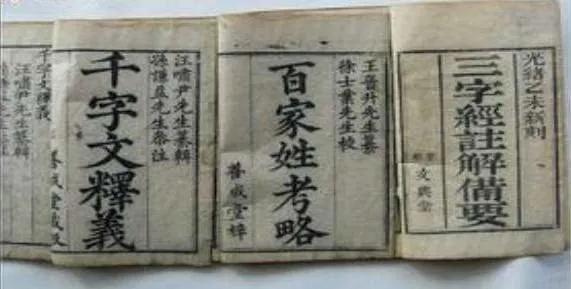 光緒乙未新刻
三字經註解備要
文興堂
王晉升先生纂
徐士業先生校
百家姓考略
堂梓
汪嘯尹先生纂輯
孫謙益先生參注
千字文釋義
千字文釋義
汪嘯尹先生纂輯